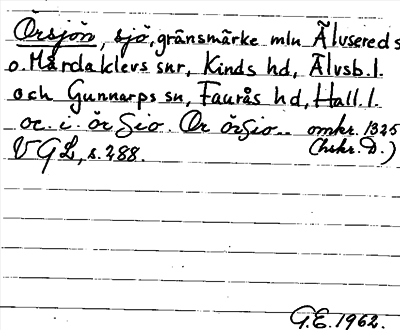 Örsjön, sjö, gränsmärke mln Älvsereds
o. Mårdaklevs snr, Kinds hd, Älvsb. l.
och Gunnarps sn, Faurås hd, Hall. l.
oc. i. ör Sio. Or örSio.. omkr. 1325
VGL, s. 288. (hskr. D.)
G.E. 1962.